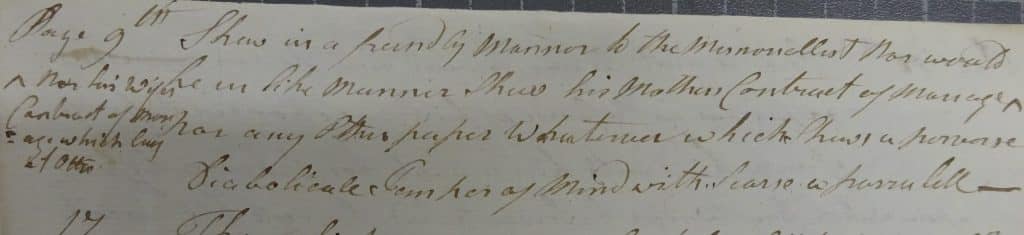 Page 9th Shew in a frendly Mannor to the Memoriallest Nor would
^ Nor his Wifes he in like Manner Shew his Mothers Contract of Marrage ^
Contract of Marr
=age which Lay Nor any Other paper Whatever which Shews a perverse
at Otter
Diabolicale Temper of Mind with Scarse a parralell —
17